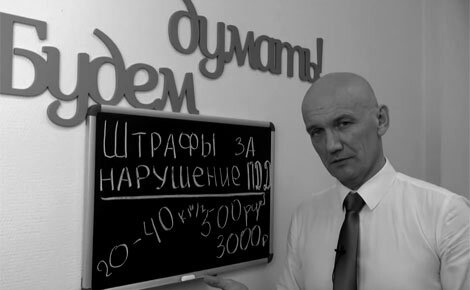 Будем
думать!
ШТРАФЫ ЗА
НАРУШЕНИЕ ПДД
20-40 км/ч 500 руб
3000 р